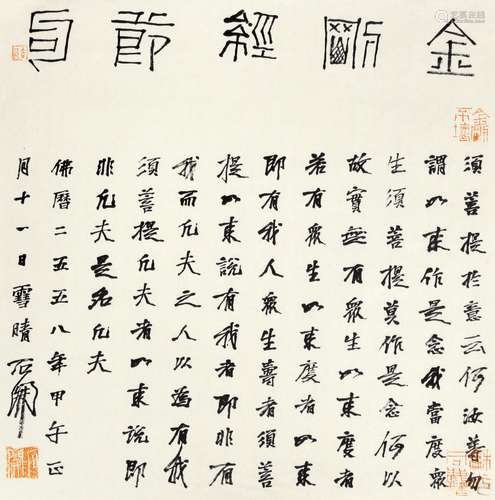 金剛經節
須菩提於意云何汝等勿
謂如來作是念我當度眾
生須菩提莫作是念何以
故實無有眾生如來度者
若有眾生如來度者如來
即有我人眾生壽者須菩
提如來說有我者即非有
我而凡夫之人以為有我
須菩提凡夫者如來說即
非凡夫是名凡夫
佛曆二五五八年甲午正
月十一日雪晴石開
金剛不壞